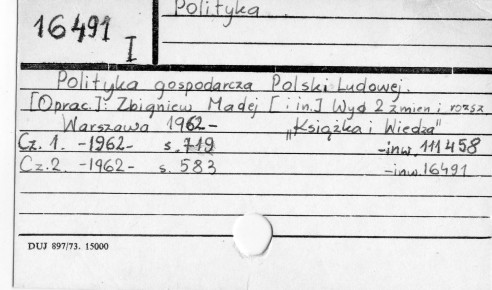 Polityka
16491
I
Polityka gospodarcza Polski Ludowej.
[Oprac.]: Zbigniew Madej [i in.] Wyd 2 zmien i rozsz
Warszawa 1962- "Książka i Wiedza"
Cz. 1. -1962- s. 719 -inw. 111458
Cz. 2. -1962- s. 583 -inw. 16491
DUJ 897/73. 15000